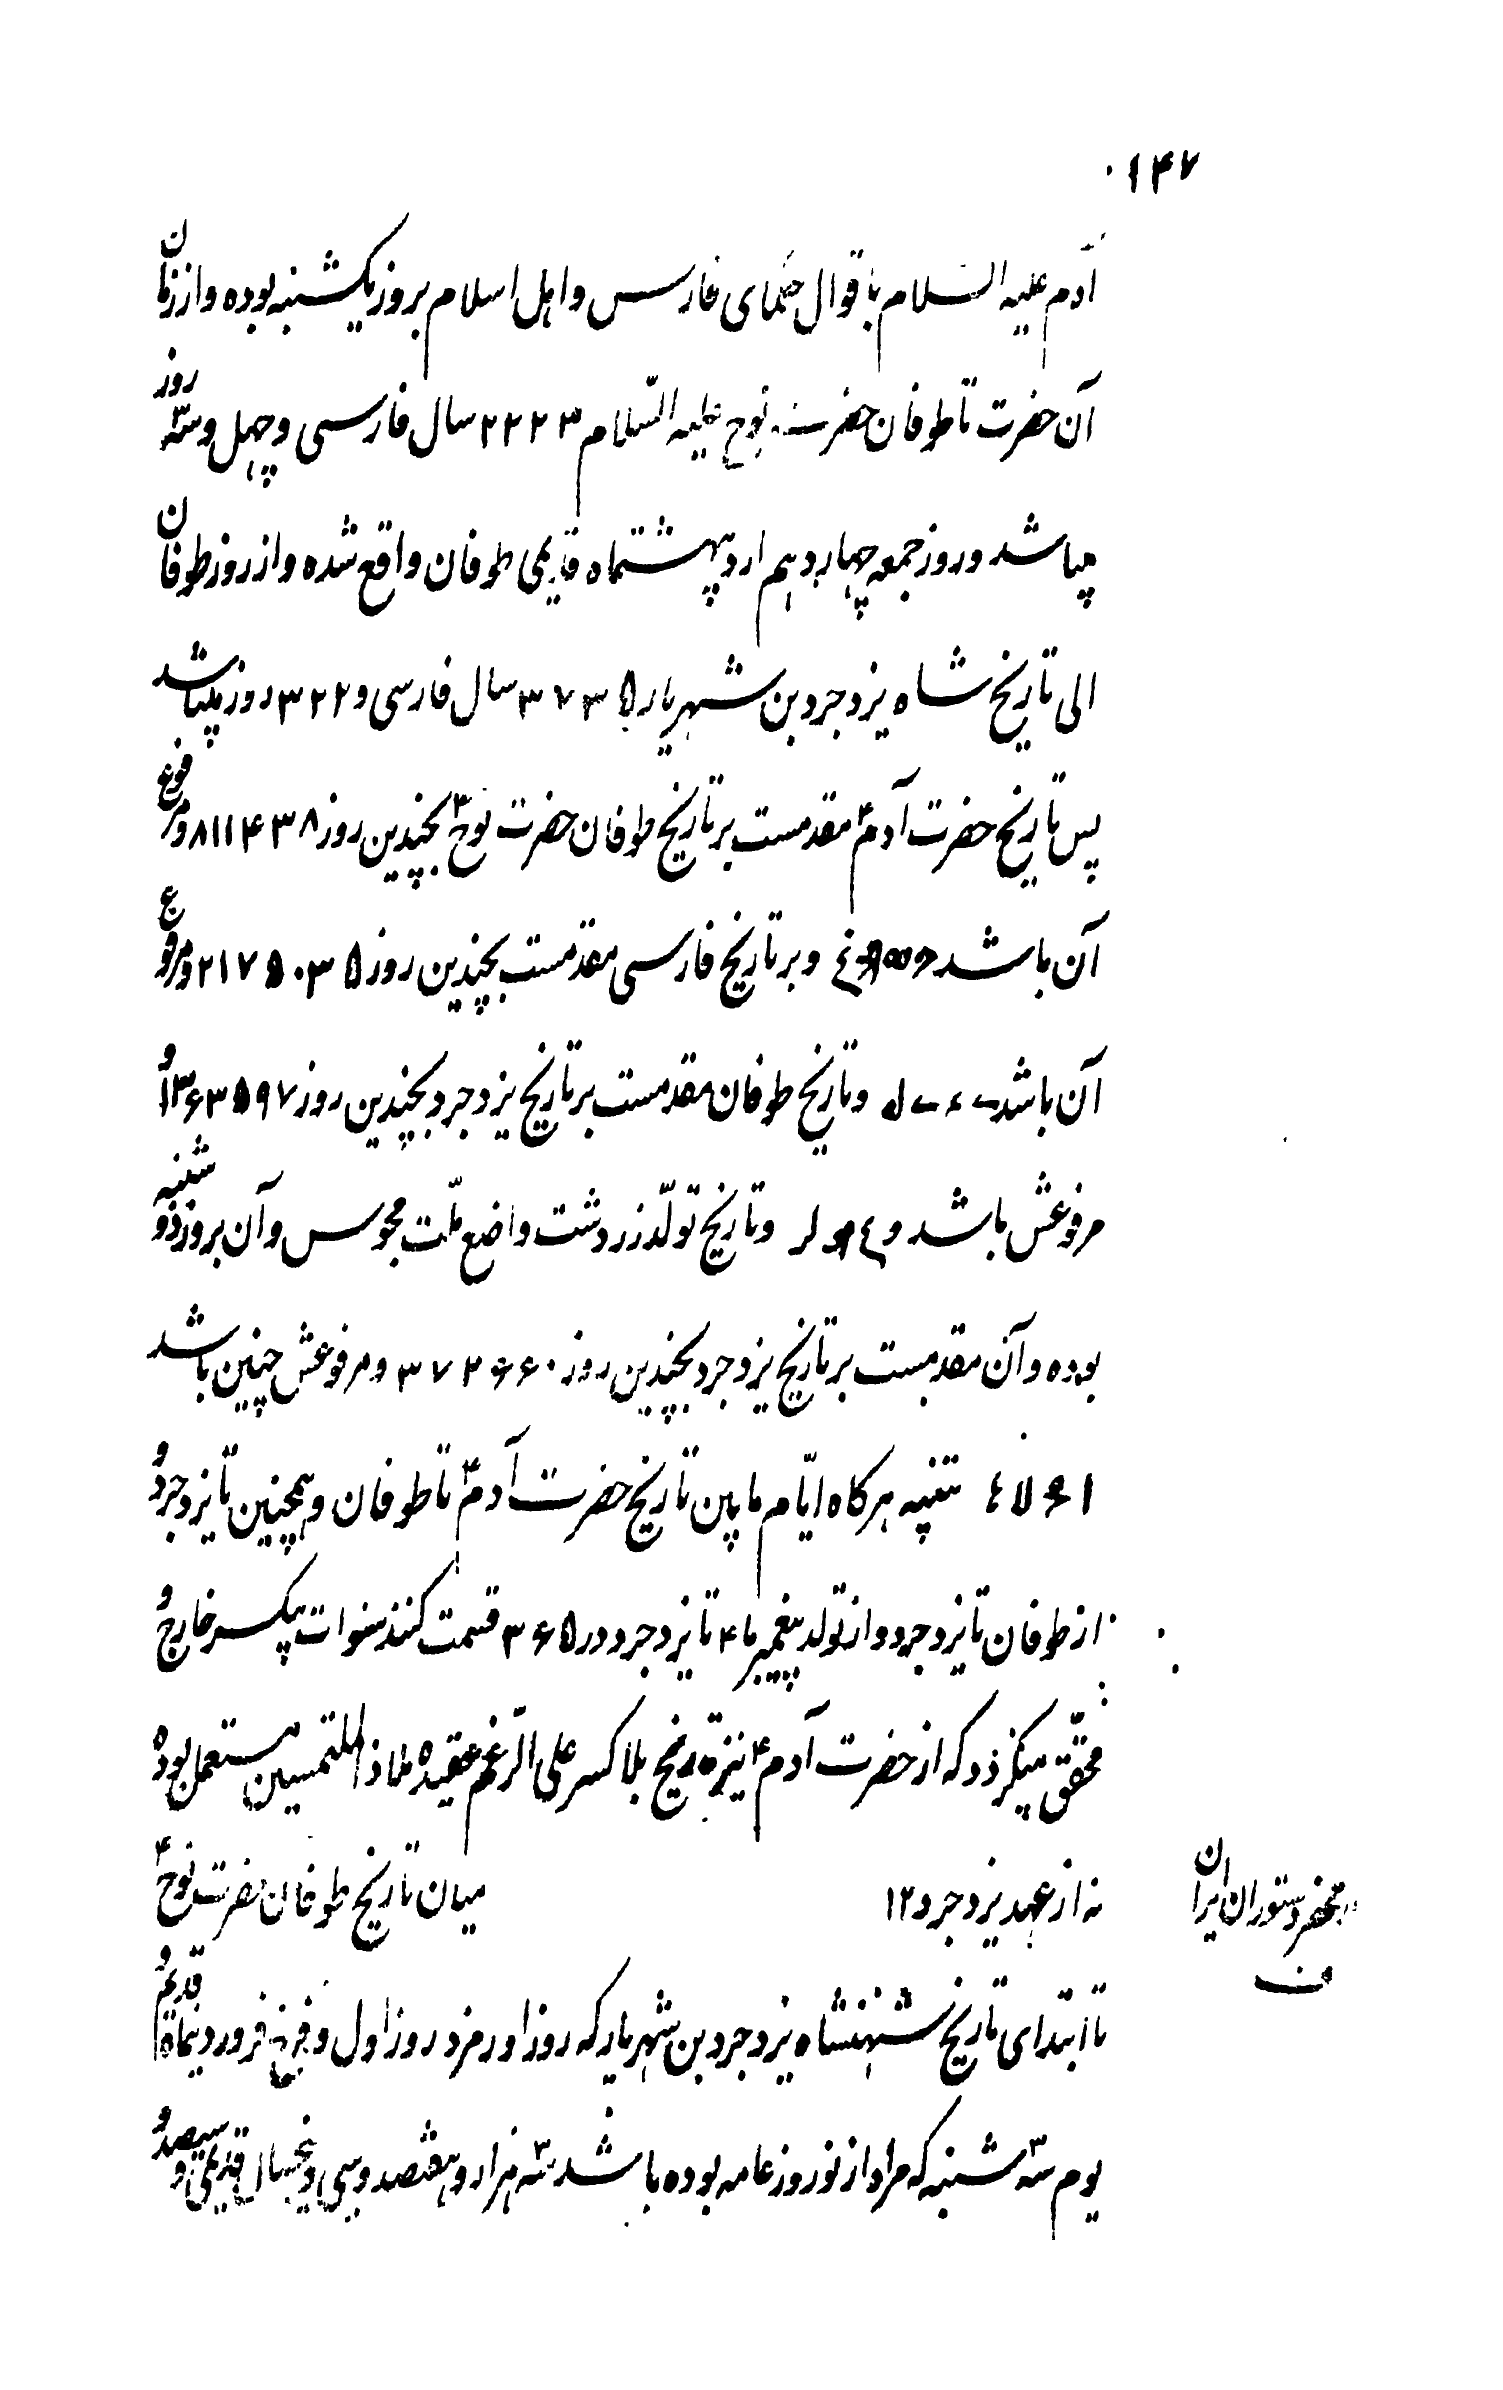 ۱۴۷
آدم علیه السلام باقوال حکمای فارس و اهل اسلام بروز یکشنبه بوده و از زمان
آن حضرت تا طوفان حضرت نوح علیه السّلام ۲۲۲۳ سال فارسی و چهل و سّه روز
میباشد و روز جمعه چهاردهم اردیبهشتماه قدیمی طوفان واقع شده و از روز طوفان
الی تاریخ شاه یزدجرد بن شهریار ۳۷۳۵ سال فارسی و ۳۲۲ روز میباشد
پس تاریخ حضرت آدم۴ مقدمست بر تاریخ طوفان حضرت نوح۴ بچندین روز ۸۱۱۴۳۸ و مرفوع
آن باشد و بر تاریخ فارسی مقدمست بچندین روز ۲۱۷۵۰۳۵ و مرفوع
آن باشد و تاریخ طوفان مقدمست بر تاریخ یزدجرد بچندین روز ۱۳۶۳۵۹۷ و
مرفوعش باشد و تاریخ تولّد زردشت واضع ملّت مجوس و آن بروز دوشنبه
بوده و آن مقدمست بر تاریخ یزدجرد بچندین روز ۳۷۲۶۶۰ و مرفوعش چنین باشد
تنبیه هرکاه ایّام مابین تاریخ حضرت آدم۴ تا طوفان و همچنین تا یزدجرد و
از طوفان تا یزدجرد و از تولد پیغمبر ما۴ تا یزدجرد در ۳۶۵ قسمت کنند سنوات بیکسر خارج و
محقّق میکردد که از حضرت آدم۴ نیز تاریخ بلا کسر علی الرّغم عقیده ملاذ الملتمسین مستعمل بوده
نه از عهد یزدجرد ۱۲ میان تاریخ طوفان حضرت نوح۴
محضر دستوران ایران
تا ابتدای تاریخ شهنشاه یزدجرد بن شهریار که روز اورمزد روز اول و فرخ فروردینماه قدیم و
یوم سّه شنبه که مراد از نوروز عامه بوده باشد سّه هزار و هفتصد و سی و پنجسال قدیمی و سیصد و